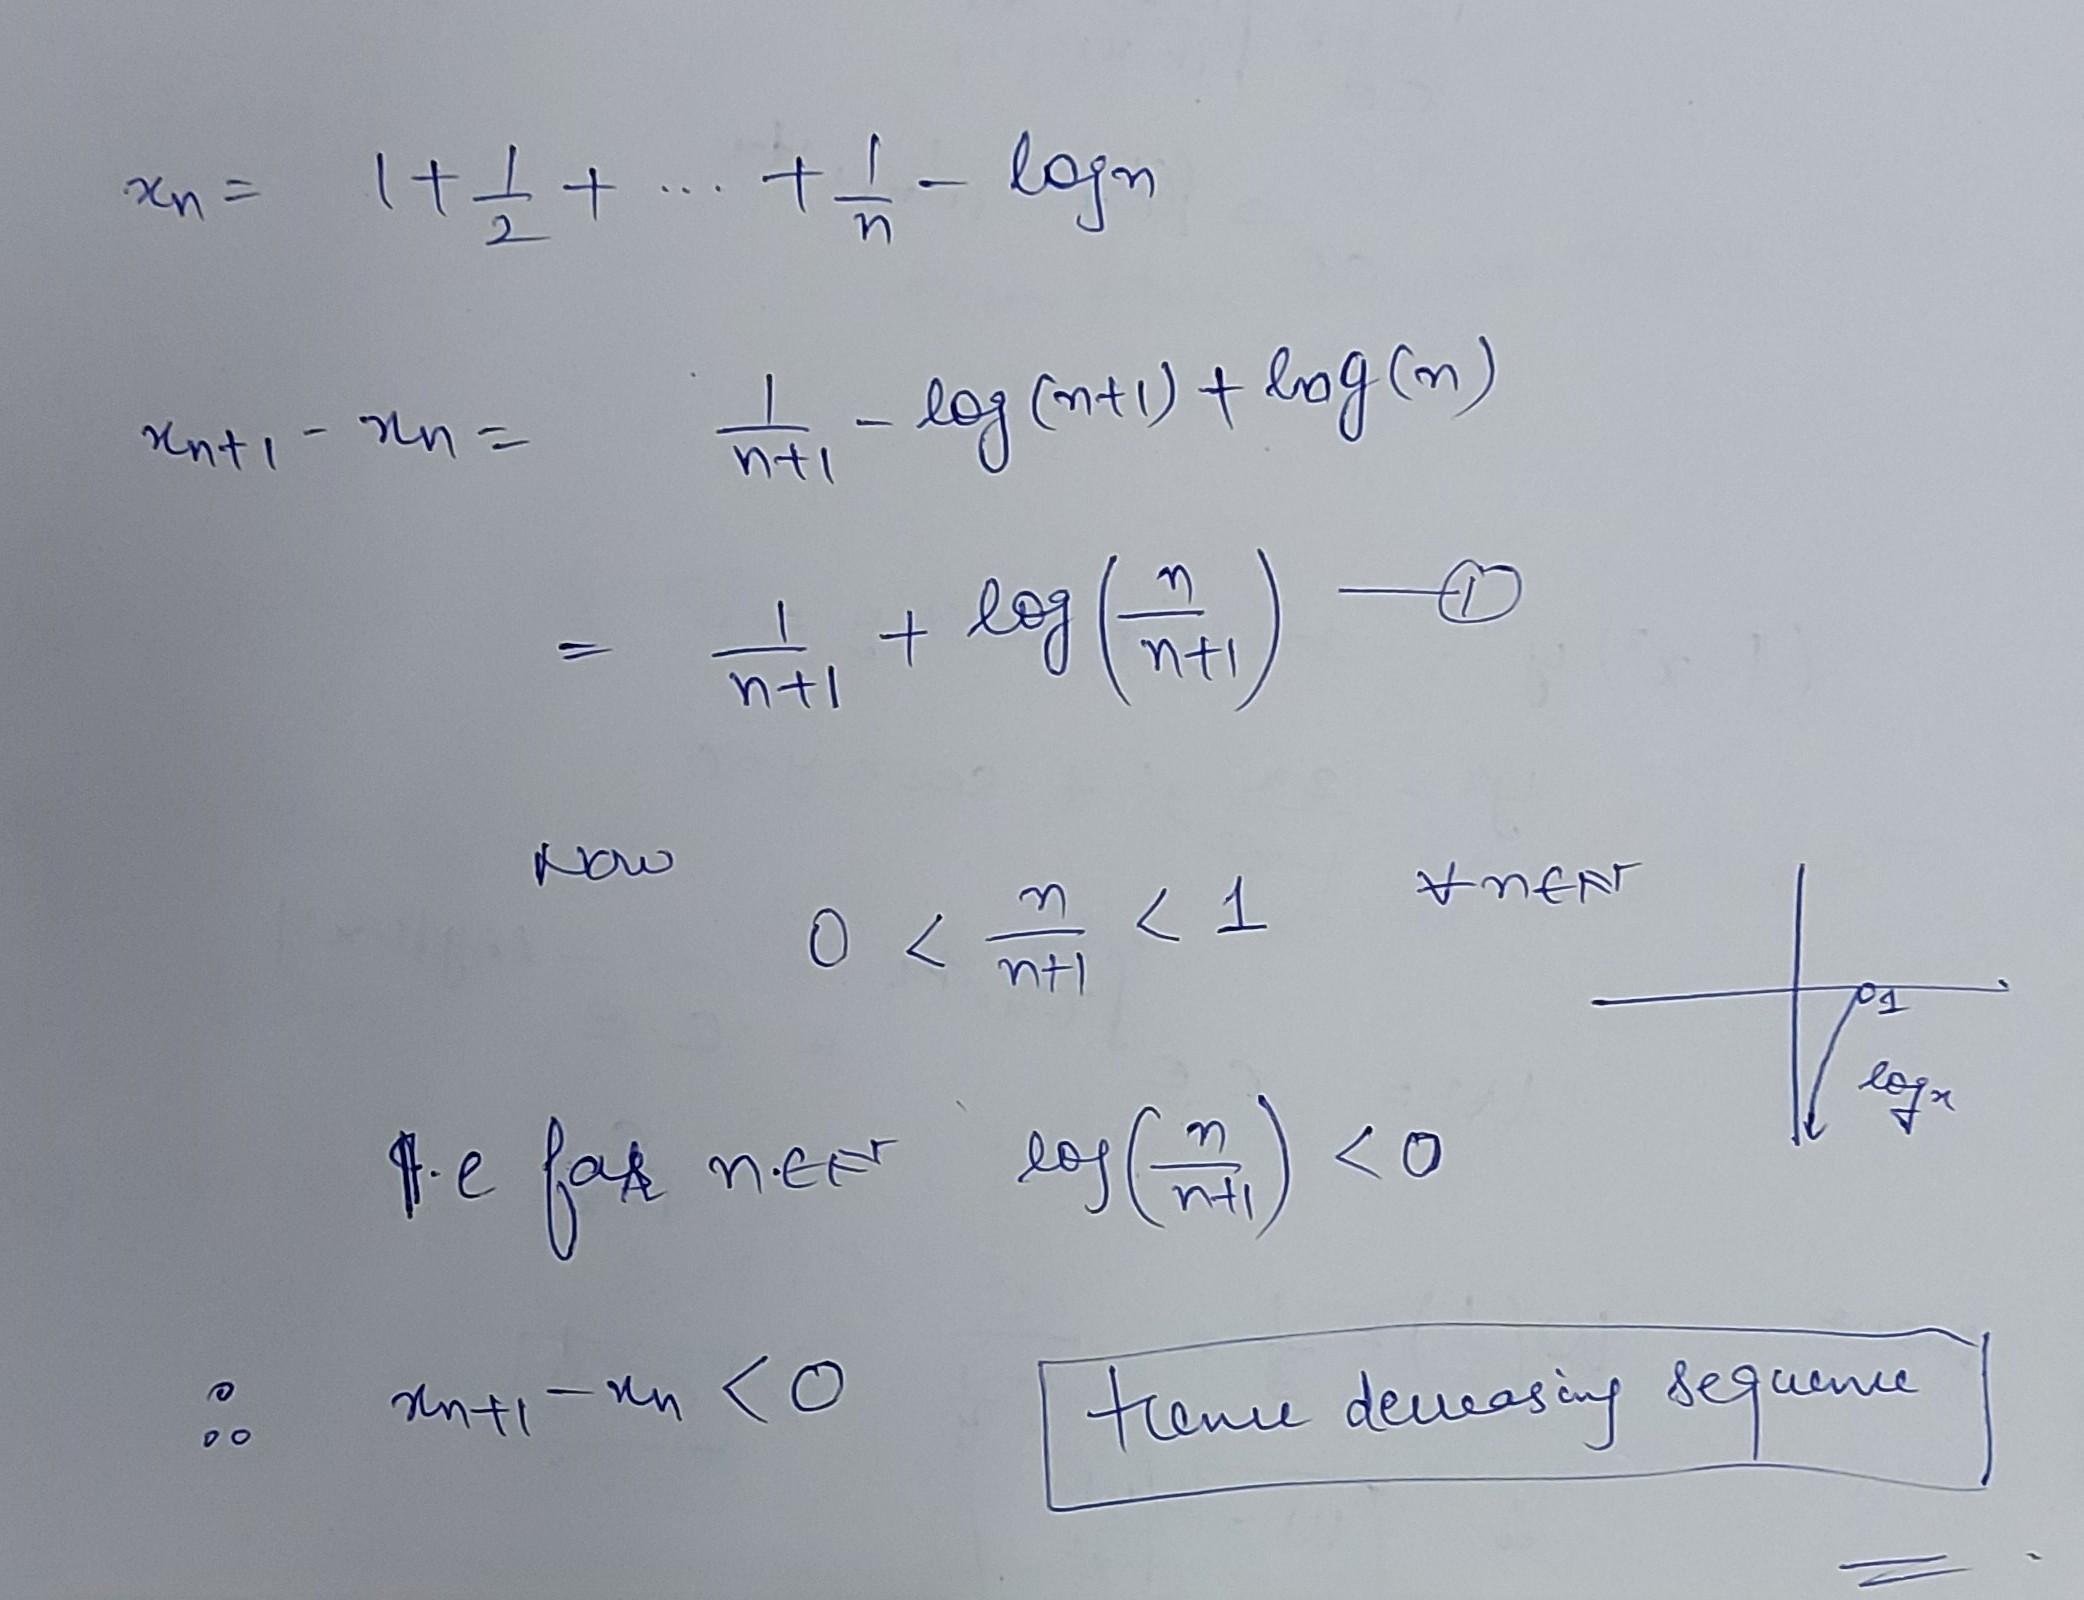 xn = 1 + 1/2 + ... + 1/n - logn
xn+1 - xn = 1/(n+1) - log(n+1) + log(n)
= 1/(n+1) + log(n/(n+1)) — ①
Now 0 < n/(n+1) < 1 ∀ n∈N
1
logx
I.e for n∈N log(n/(n+1)) < 0
∴ xn+1 - xn < 0 Hence decreasing sequence